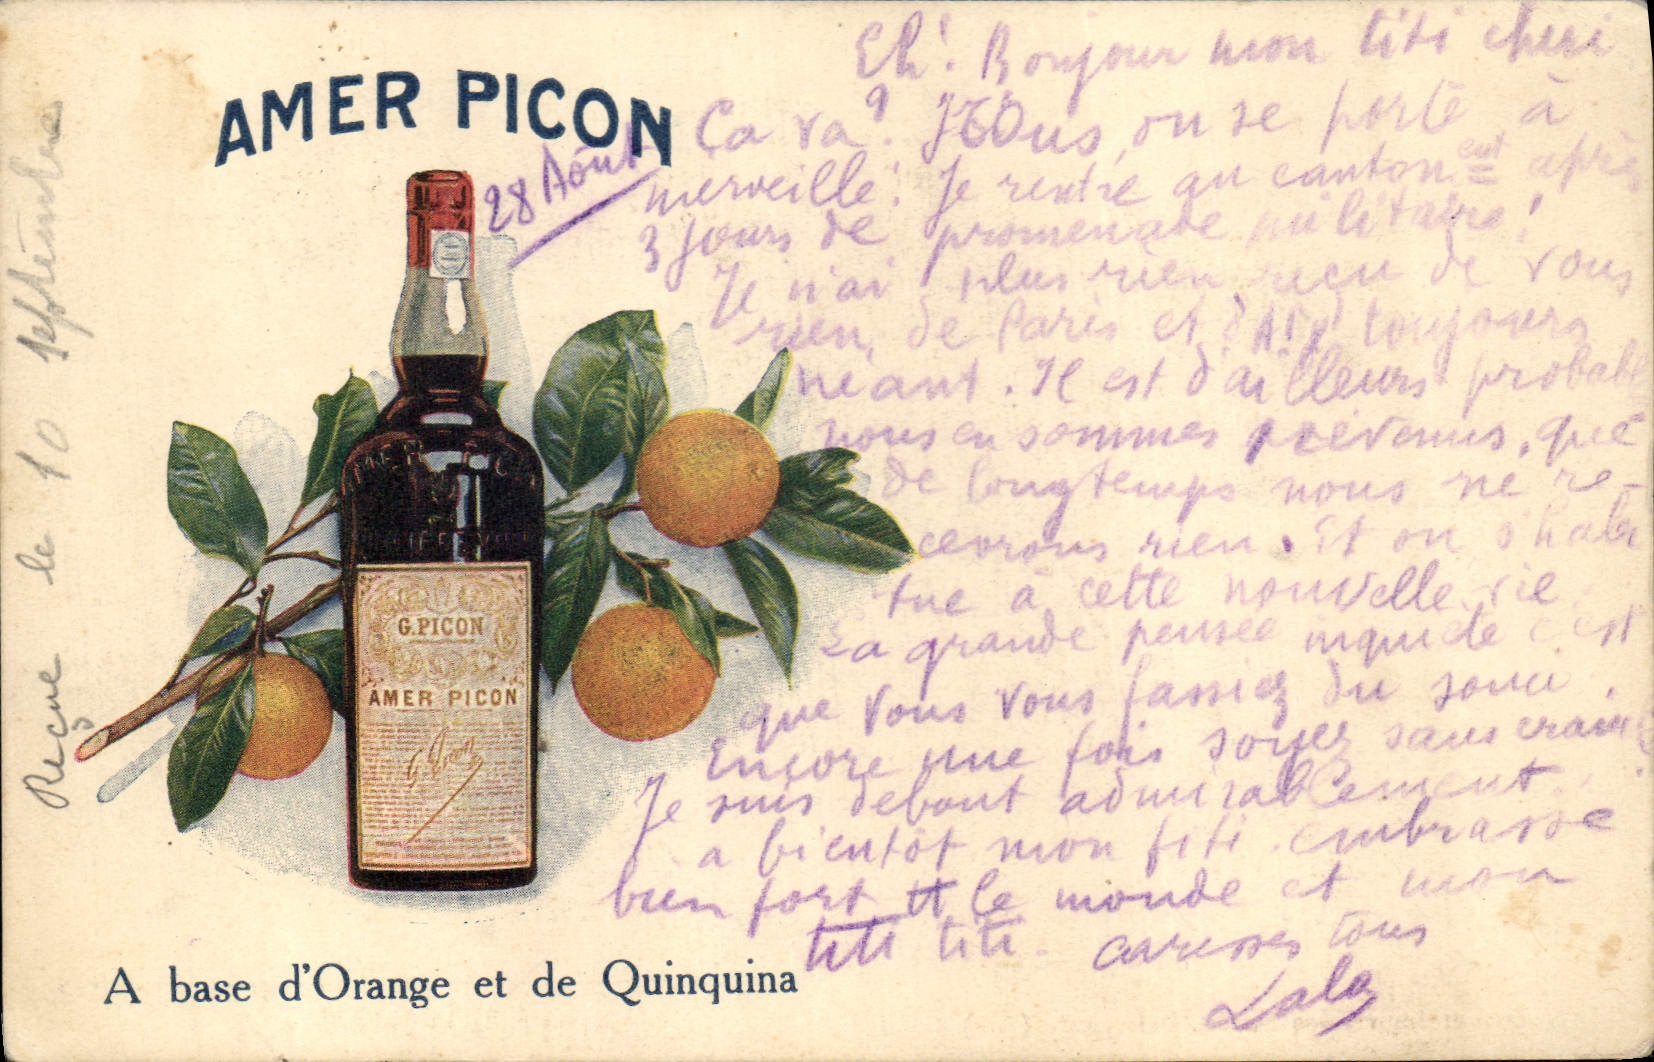 AMER PICON
28 Août
Eh! Bonjour mon titi chéri
Ça va? Nous, on se porte à
merveille! Je rentre au cantonent après
3 jours de promenade militaire!
Je n'ai plus rien reçu de vous
rien, de Paris et d'Aix toujours
néant. Il est d'ailleurs probabl
nous en sommes prévenus, que
de longtemps nous ne re-
cevrons rien. Et on s'habi
tue à cette nouvelle vie
La grande pensée inquiète c'est
que vous vous fassiez du souci.
Encore une fois soyez sans crainte
Je suis debout admirablement.
a bientôt mon titi. embrasse
bien fort tt le monde et mon
titi titi. caresses tous
Lala
Reçue le 10 septembre
G. PICON
AMER PICON
G. Picon
A base d'Orange et de Quinquina